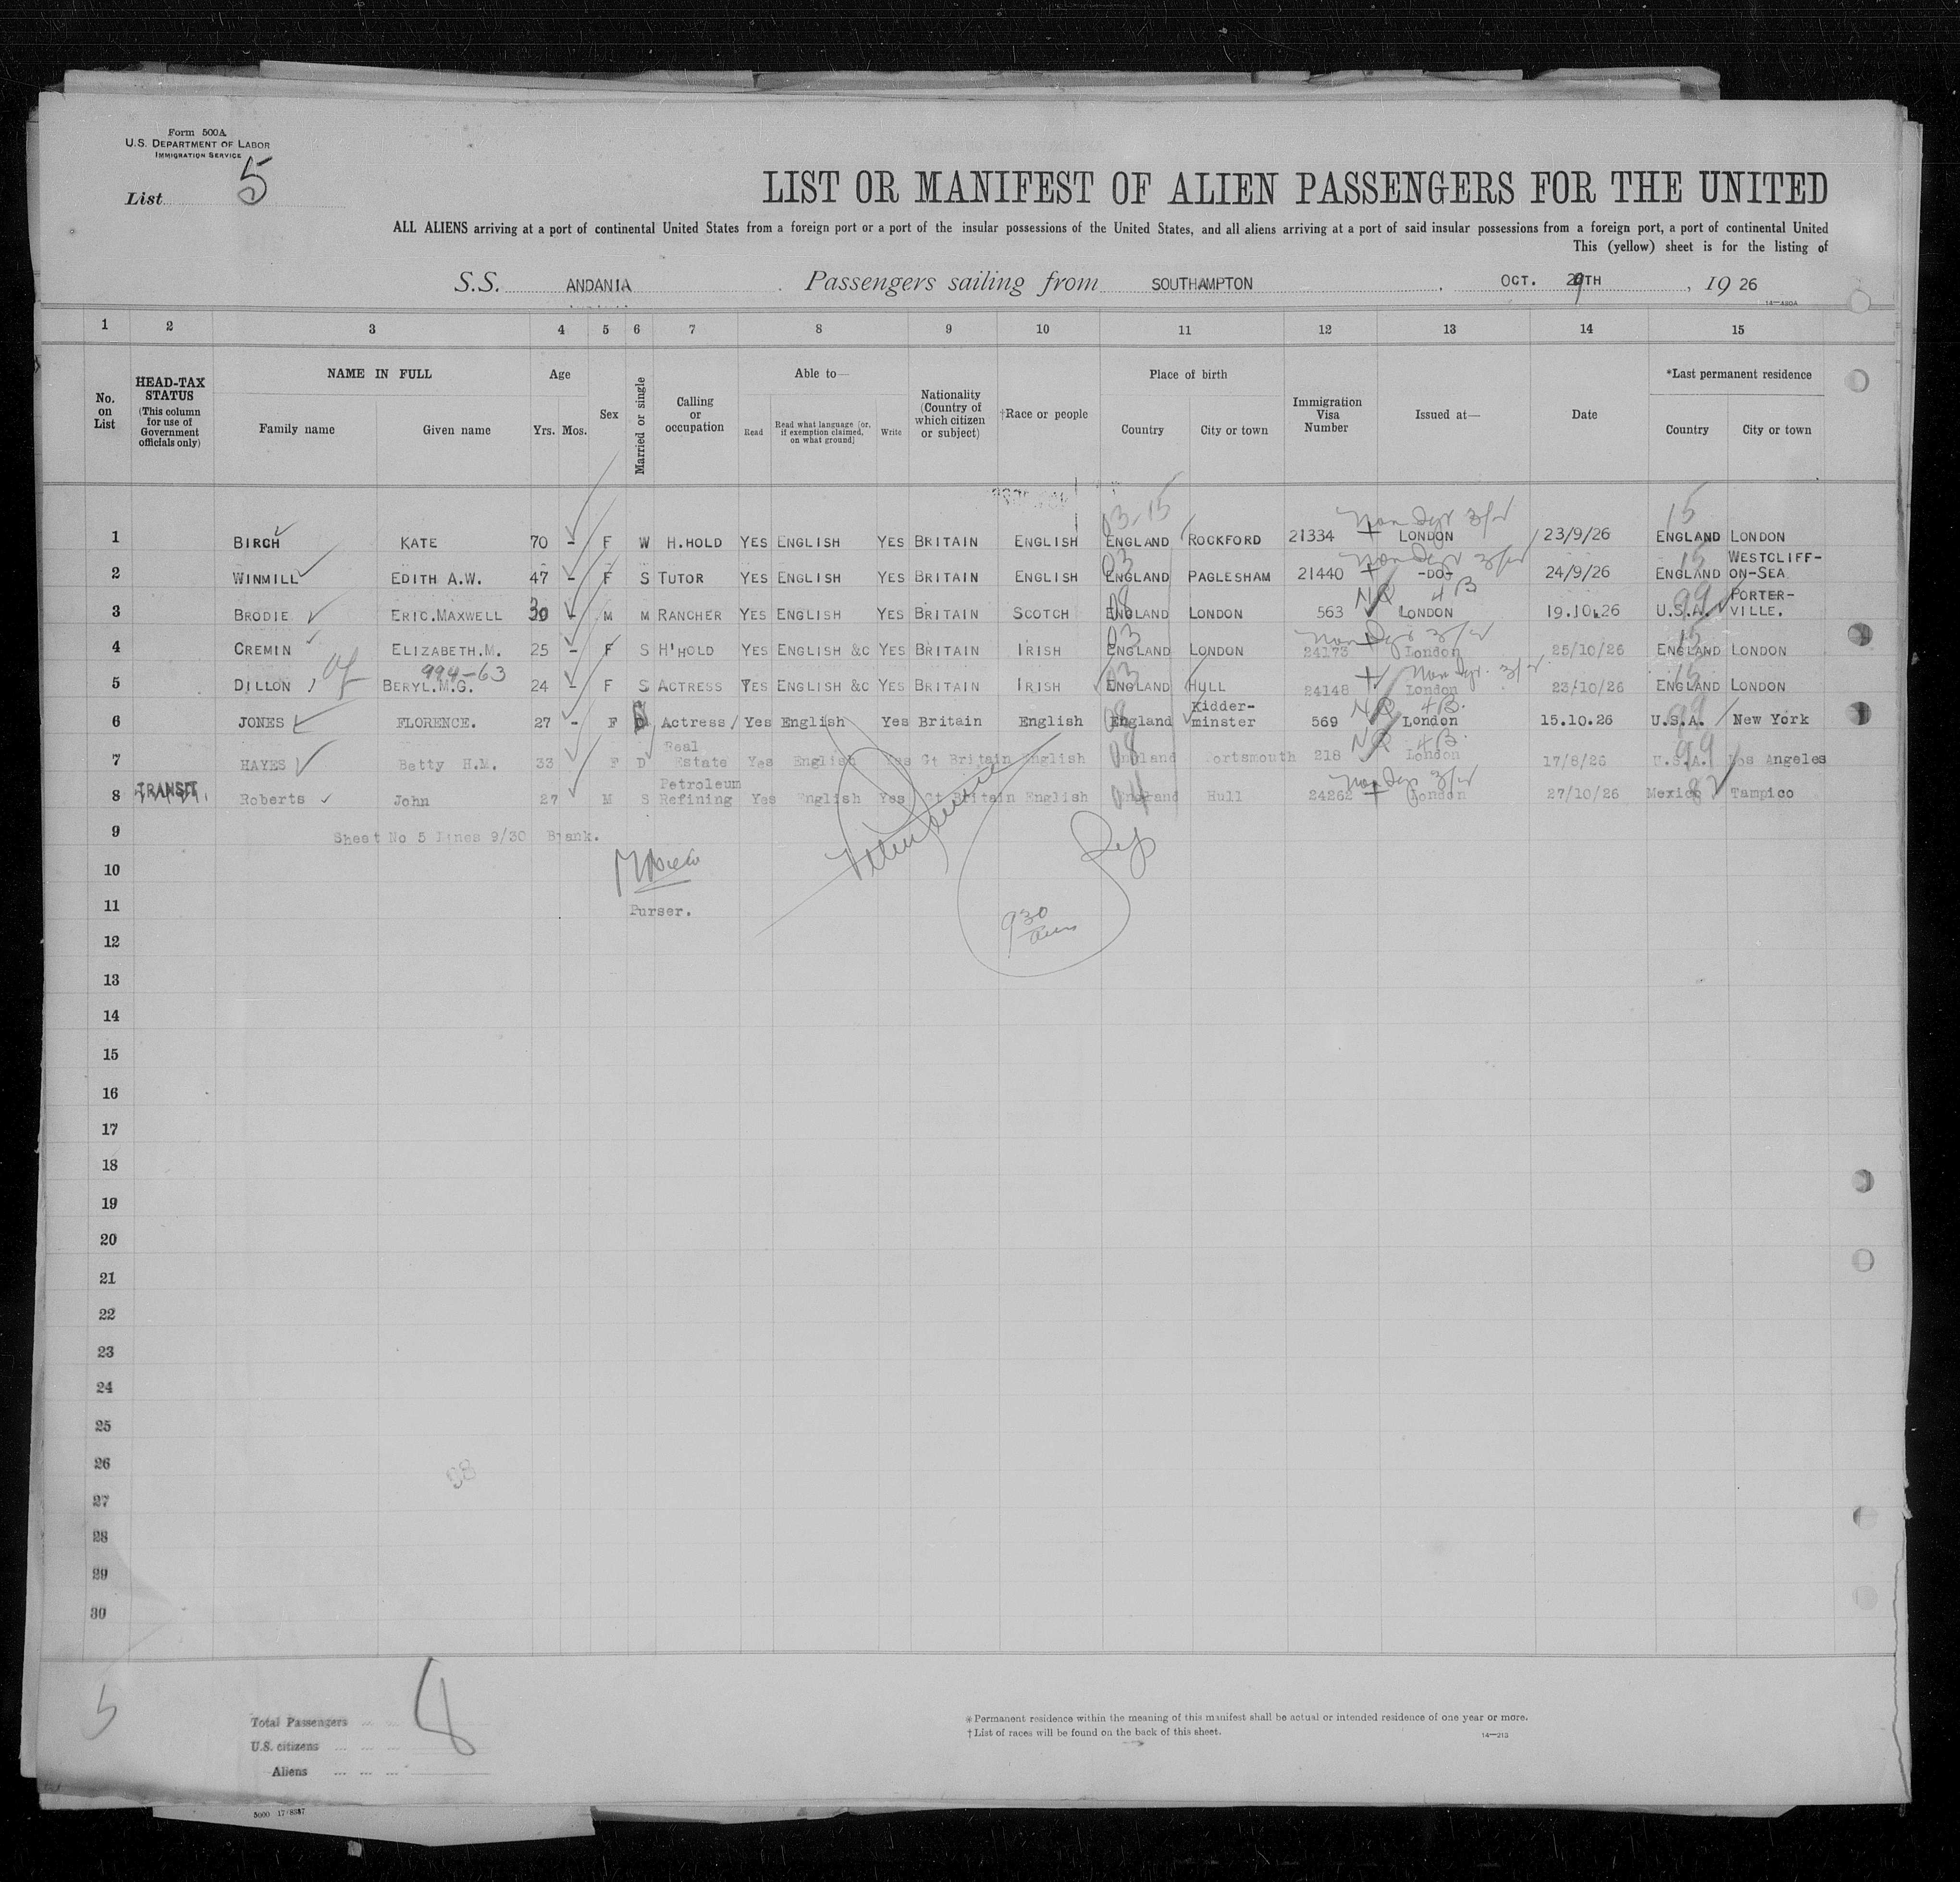 Form 500A
U.S. DEPARTMENT OF LABOR
IMMIGRATION SERVICE
List 5
LIST OR MANIFEST OF ALIEN PASSENGERS FOR THE UNITED
ALL ALIENS arriving at a port of continental United States from a foreign port or a port of the insular possessions of the United States, and all aliens arriving at a port of said insular possessions from a foreign port, a port of continental United
This (yellow) sheet is for the listing of
S.S. ANDANIA Passengers sailing from SOUTHAMPTON, OCT. 29TH, 19 26
14-480A
1 2 3 4 5 6 7 8 9 10 11 12 13 14 15
No. on List
HEAD-TAX STATUS (This column for use of Government officials only)
NAME IN FULL
Family name Given name
Age
Yrs. Mos.
Sex
Married or single
Calling or occupation
Able to—
Read Read what language [or, if exemption claimed, on what ground] Write
Nationality (Country of which citizen or subject)
†Race or people
Place of birth
Country City or town
Immigration Visa Number
Issued at—
Date
*Last permanent residence
Country City or town
03-15 15
1 BIRCH KATE 70 - F W H.HOLD YES ENGLISH YES BRITAIN ENGLISH ENGLAND ROCKFORD 21334 LONDON 23/9/26 ENGLAND LONDON
03 15
2 WINMILL EDITH A.W. 47 - F S TUTOR YES ENGLISH YES BRITAIN ENGLISH ENGLAND PAGLESHAM 21440 -DO- 24/9/26 ENGLAND WESTCLIFF-ON-SEA
08 NQ 4B 99
3 BRODIE ERIC.MAXWELL 30 - M M RANCHER YES ENGLISH YES BRITAIN SCOTCH ENGLAND LONDON 563 LONDON 19.10.26 U.S.A. PORTER-VILLE.
03 15
4 CREMIN ELIZABETH.M. 25 - F S H'HOLD YES ENGLISH &C YES BRITAIN IRISH ENGLAND LONDON 24173 London 25/10/26 ENGLAND LONDON
994-63 03 15
5 DILLON BERYL.M.G. 24 - F S ACTRESS YES ENGLISH &C YES BRITAIN IRISH ENGLAND HULL 24148 London 23/10/26 ENGLAND LONDON
08 NQ 4B. 99
6 JONES FLORENCE. 27 - F S Actress Yes English Yes Britain English England Kidder-minster 569 London 15.10.26 U.S.A. New York
08 NQ 4B. 99
7 HAYES Betty H.M. 33 F D Real Estate Yes English Yes Gt Britain English England Portsmouth 218 London 17/8/26 U.S.A. Los Angeles
04 82
8 TRANSIT. Roberts John 27 M S Petroleum Refining Yes English Yes Gt Britain English England Hull 24262 London 27/10/26 Mexico Tampico
9 Sheet No 5 Lines 9/30 Blank.
10
11 Purser.
9 30
12
13
14
15
16
17
18
19
20
21
22
23
24
25
26
98
27
28
29
30
5
8
Total Passengers
U.S. citizens
Aliens
*Permanent residence within the meaning of this manifest shall be actual or intended residence of one year or more.
†List of races will be found on the back of this sheet.
14-213